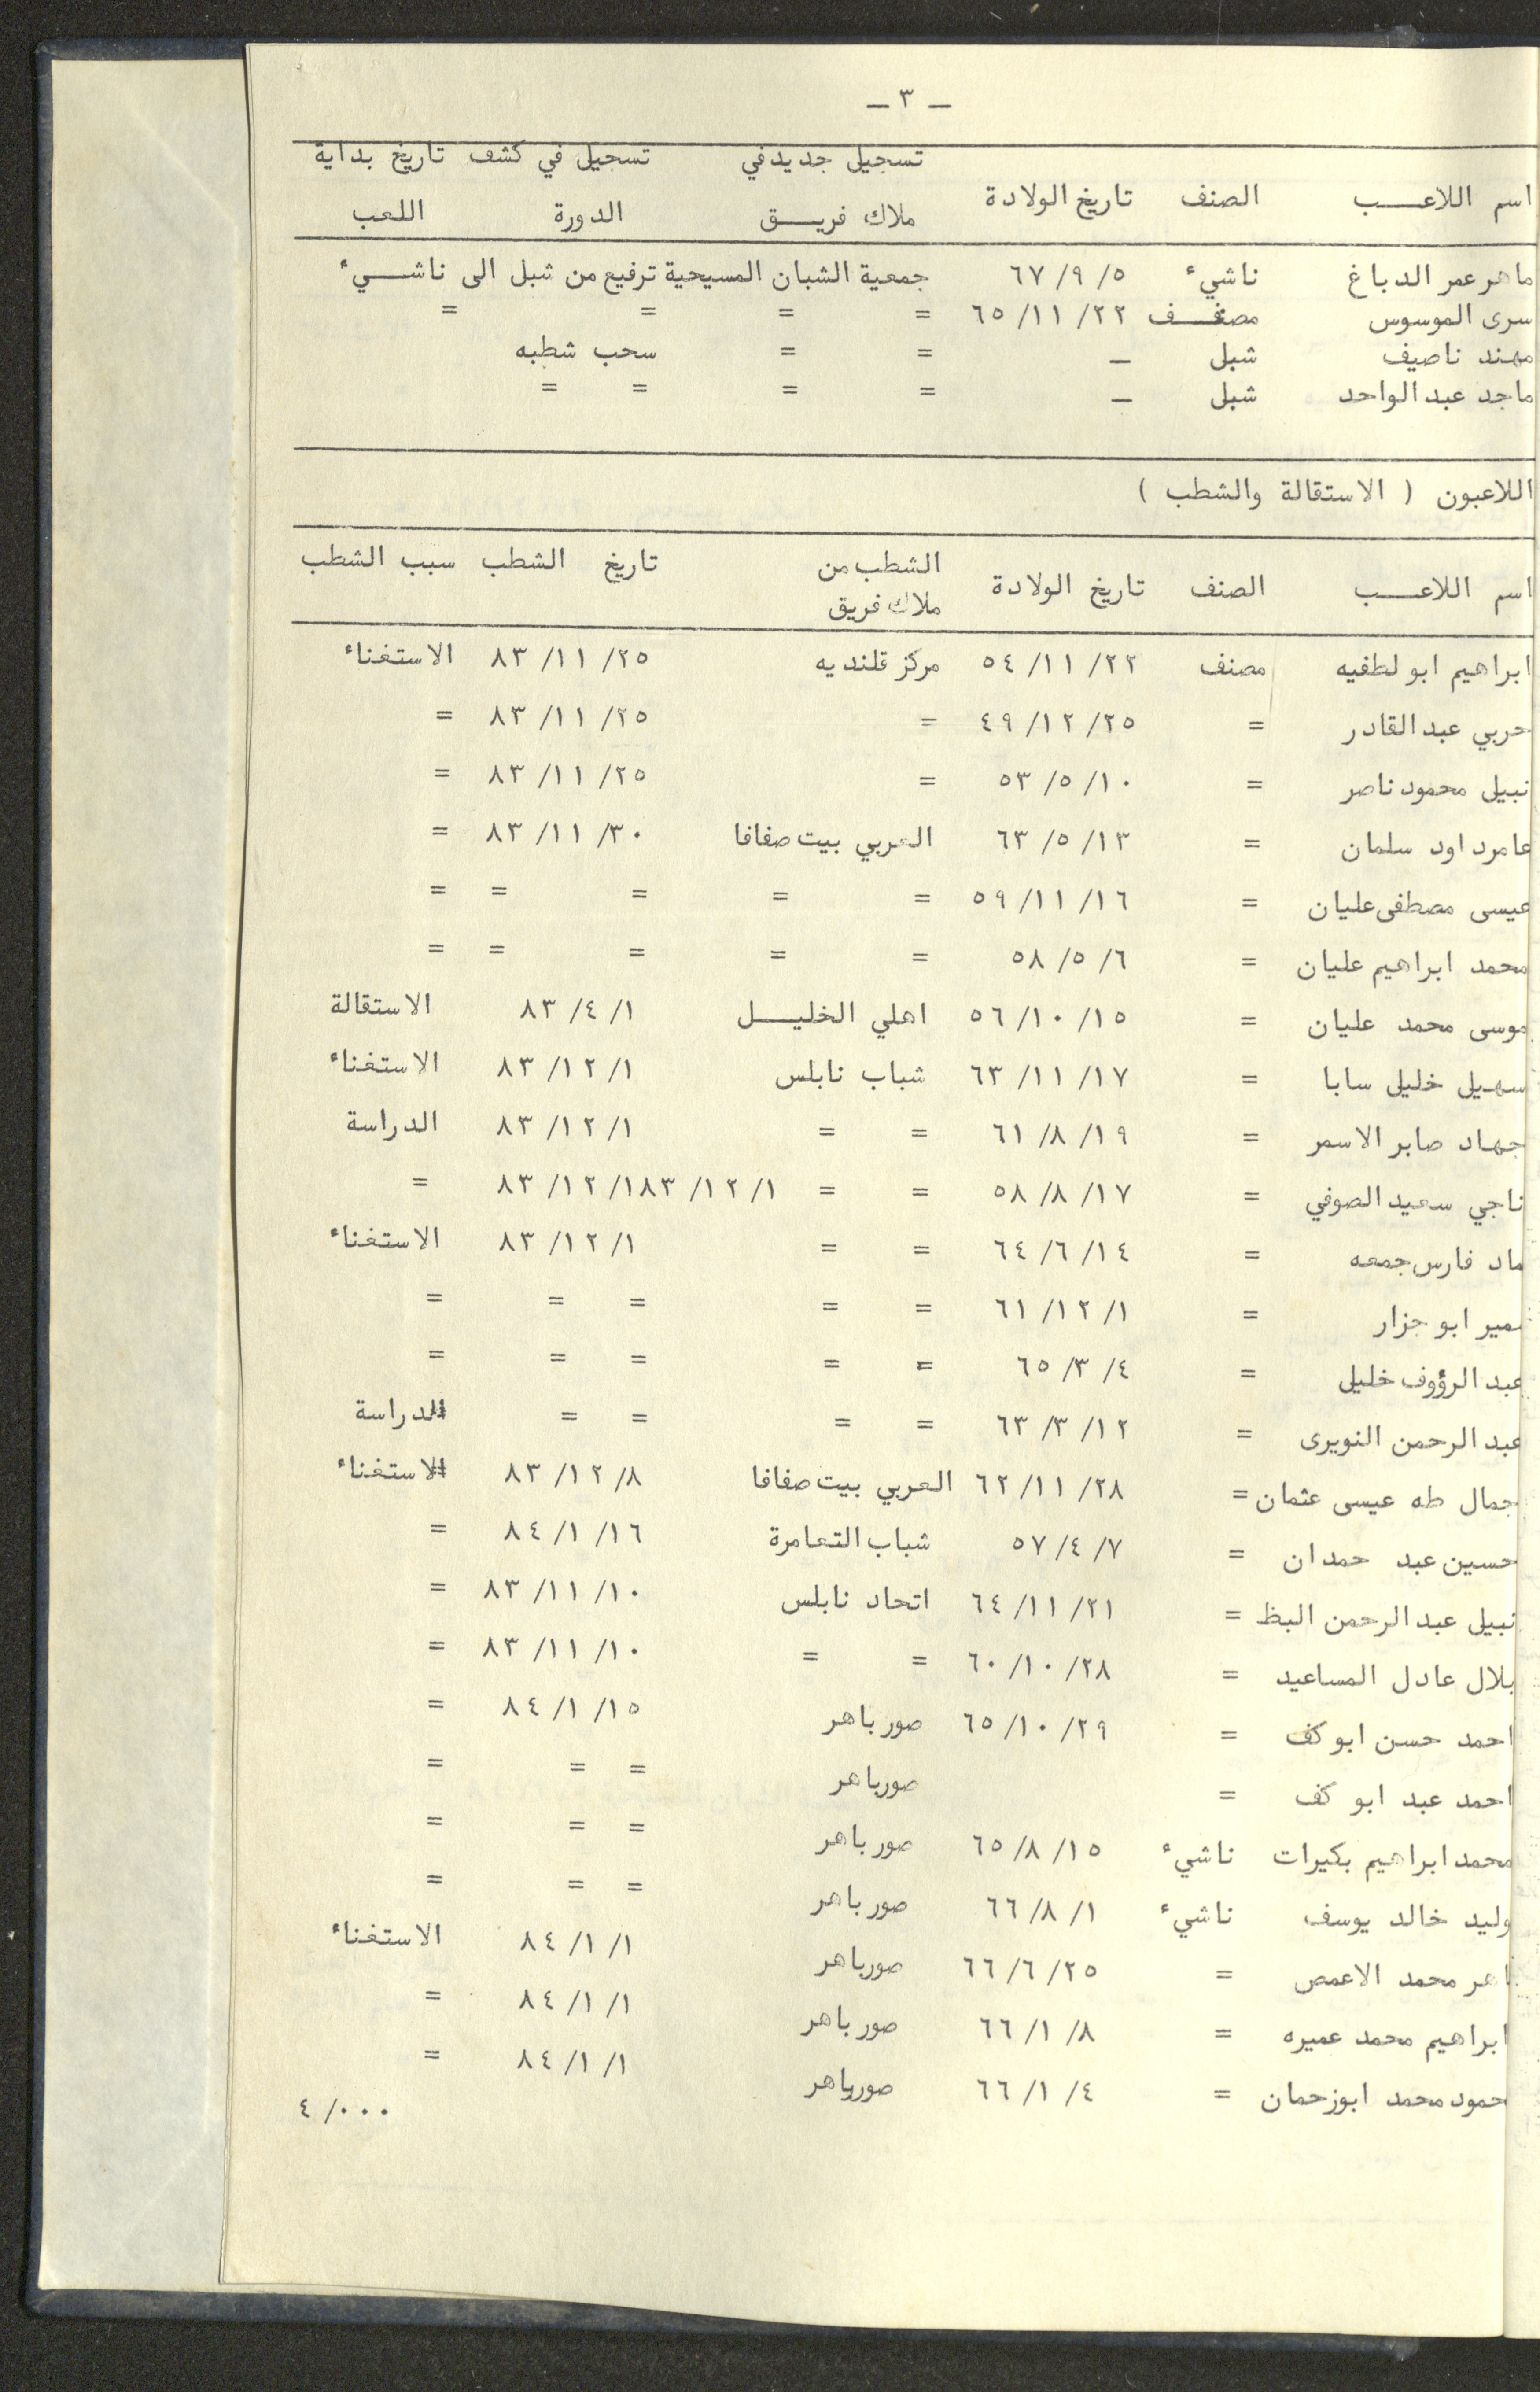 — ٣ —
اسم اللاعـــب الصنف تاريخ الولادة تسجيل جديد في ملاك فريـــق تسجيل في كشف الدورة تاريخ بداية اللعب
ماهر عمر الدباغ ناشيء ٥/ ٩/ ٦٧ جمعية الشبان المسيحية ترفيع من شبل الى ناشـــيء
سرى الموسوس مصنف ٢٢/ ١١/ ٦٥ = = = =
مهند ناصيف شبل — = = سحب شطبه
ماجد عبد الواحد شبل — = = = =
اللاعبون ( الاستقالة والشطب )
اسم اللاعـــب الصنف تاريخ الولادة الشطب من ملاك فريق تاريخ الشطب سبب الشطب
ابراهيم ابو لطفيه مصنف ٢٢/ ١١/ ٥٤ مركز قلنديه ٢٥/ ١١/ ٨٣ الاستغناء
حربي عبد القادر = ٢٥/ ١٢/ ٤٩ = ٢٥/ ١١/ ٨٣ =
نبيل محمود ناصر = ١٠/ ٥/ ٥٣ = ٢٥/ ١١/ ٨٣ =
عامر داود سلمان = ١٣/ ٥/ ٦٣ العربي بيت صفافا ٣٠/ ١١/ ٨٣ =
عيسى مصطفى عليان = ١٦/ ١١/ ٥٩ = = = = =
محمد ابراهيم عليان = ٦/ ٥/ ٥٨ = = = = =
موسى محمد عليان = ١٥/ ١٠/ ٥٦ اهلي الخليـــل ١/ ٤/ ٨٣ الاستقالة
سهيل خليل سابا = ١٧/ ١١/ ٦٣ شباب نابلس ١/ ١٢/ ٨٣ الاستغناء
جهاد صابر الاسمر = ١٩/ ٨/ ٦١ = = ١/ ١٢/ ٨٣ الدراسة
ناجي سعيد الصوفي = ١٧/ ٨/ ٥٨ = = ١/ ١٢/ ١٨٣/ ١٢/ ٨٣ =
ماد فارس جمعه = ١٤/ ٦/ ٦٤ = = ١/ ١٢/ ٨٣ الاستغناء
مير ابو جزار = ١/ ١٢/ ٦١ = = = = =
عبد الرؤوف خليل = ٤/ ٣/ ٦٥ = = = = =
عبد الرحمن النويرى = ١٢/ ٣/ ٦٣ = = = = الدراسة
جمال طه عيسى عثمان = ٢٨/ ١١/ ٦٢ العربي بيت صفافا ٨/ ١٢/ ٨٣ الاستغناء
حسين عبد حمدان = ٧/ ٤/ ٥٧ شباب التعامرة ١٦/ ١/ ٨٤ =
نبيل عبد الرحمن البظ = ٢١/ ١١/ ٦٤ اتحاد نابلس ١٠/ ١١/ ٨٣ =
بلال عادل المساعيد = ٢٨/ ١٠/ ٦٠ = = ١٠/ ١١/ ٨٣ =
احمد حسن ابو كف = ٢٩/ ١٠/ ٦٥ صور باهر ١٥/ ١/ ٨٤ =
احمد عبد ابو كف = صور باهر = = =
محمد ابراهيم بكيرات ناشيء ١٥/ ٨/ ٦٥ صور باهر = = =
وليد خالد يوسف ناشيء ١/ ٨/ ٦٦ صور باهر = = =
اهر محمد الاعمص = ٢٥/ ٦/ ٦٦ صور باهر ١/ ١/ ٨٤ الاستغناء
ابراهيم محمد عميره = ٨/ ١/ ٦٦ صور باهر ١/ ١/ ٨٤ =
حمود محمد ابوزحمان = ٤/ ١/ ٦٦ صور باهر ١/ ١/ ٨٤ =
٠٠٠/ ٤